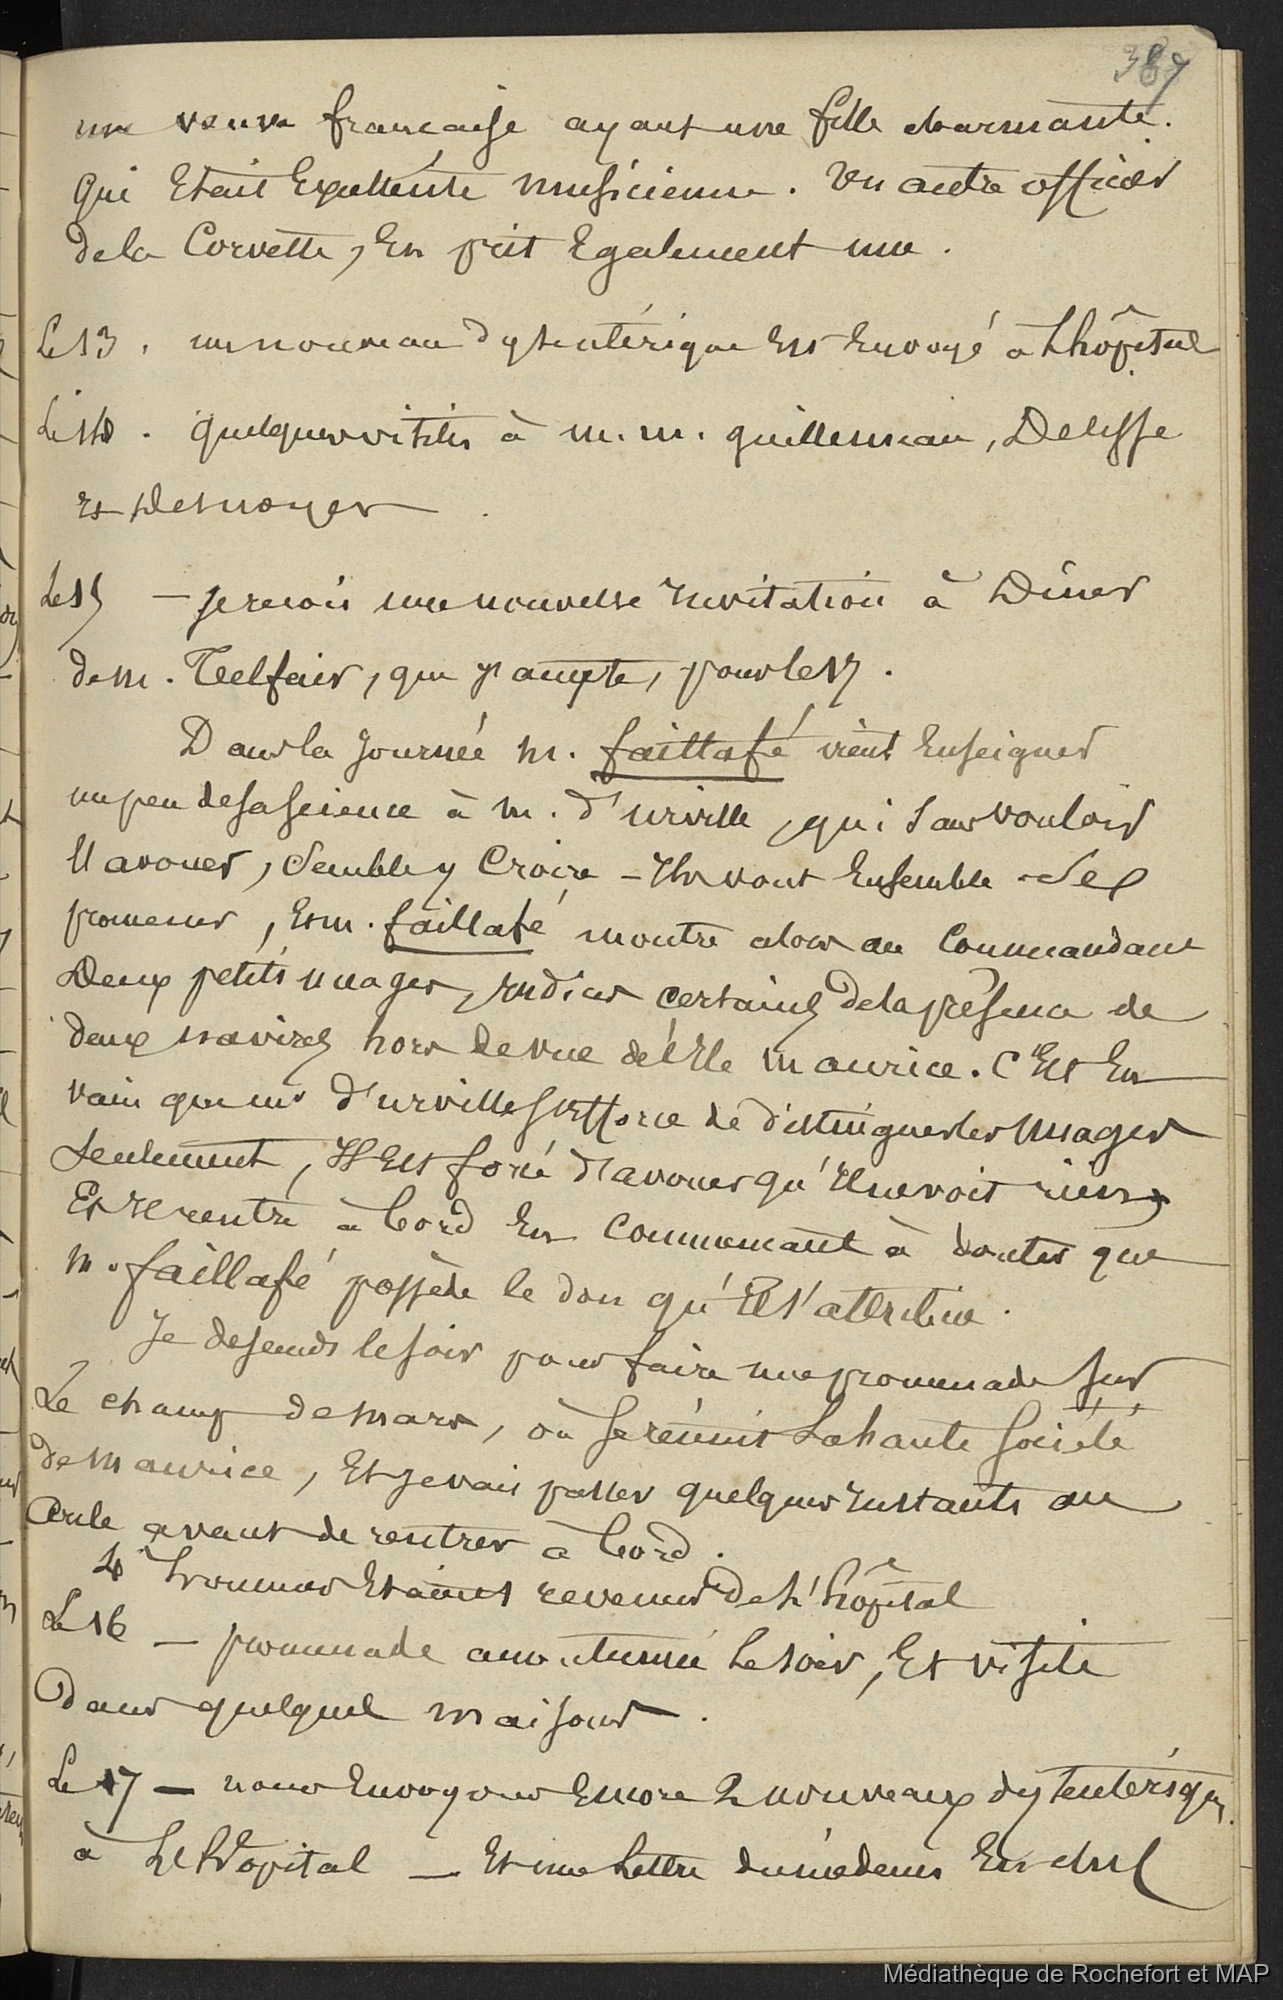 387
une veuve française ayant une fille charmante.
qui Etait Excellente musicienne. Un autre officier
de la Corvette, En prit Egalement une.
Le 13. un nouveau dysentérique Est Envoyé à L'hôpital
Le 14. quelques visites à m. m. guillemeau, Delisse
et Desnoyer
Le 15 — je reçois une nouvelle Invitation à Dîner
de m. Telfair, que j'accepte, pour le 17.
Dans la Journée m. faillafé vient Enseigner
un peu de sa science à m. d'urville, qui sans vouloir
l'avouer, semble y Croire — Ils vont Ensemble se
promener, Et m. faillafé montre alors au Commandant
Deux petits nuages, Indices certains de la présence de
deux navires hors de vue de l'Ile maurice. C'Est En
vain que mr d'urville s'Efforce de distinguer les nuages
seulement, Il Est forcé d'avouer qu'Il ne voit rien,
Et Il rentre à bord En Commençant à douter que
m. faillafé possède le don qu'Il s'attribue.
Je descends le soir pour faire une promenade sur
Le champ de mars, où se réunit La haute société
de maurice, Et je vais passer quelques Instants au
Cercle avant de rentrer à bord.
4 hommes Etaient revenus De L'hôpital
Le 16 — promenade accoutumée Le soir, Et visite
Dans quelques maisons.
Le 17 — nous Envoyons Encore 2 nouveaux dysentériques
à L'hopital — Et une Lettre du médecin En chef
Médiathèque de Rochefort et MAP